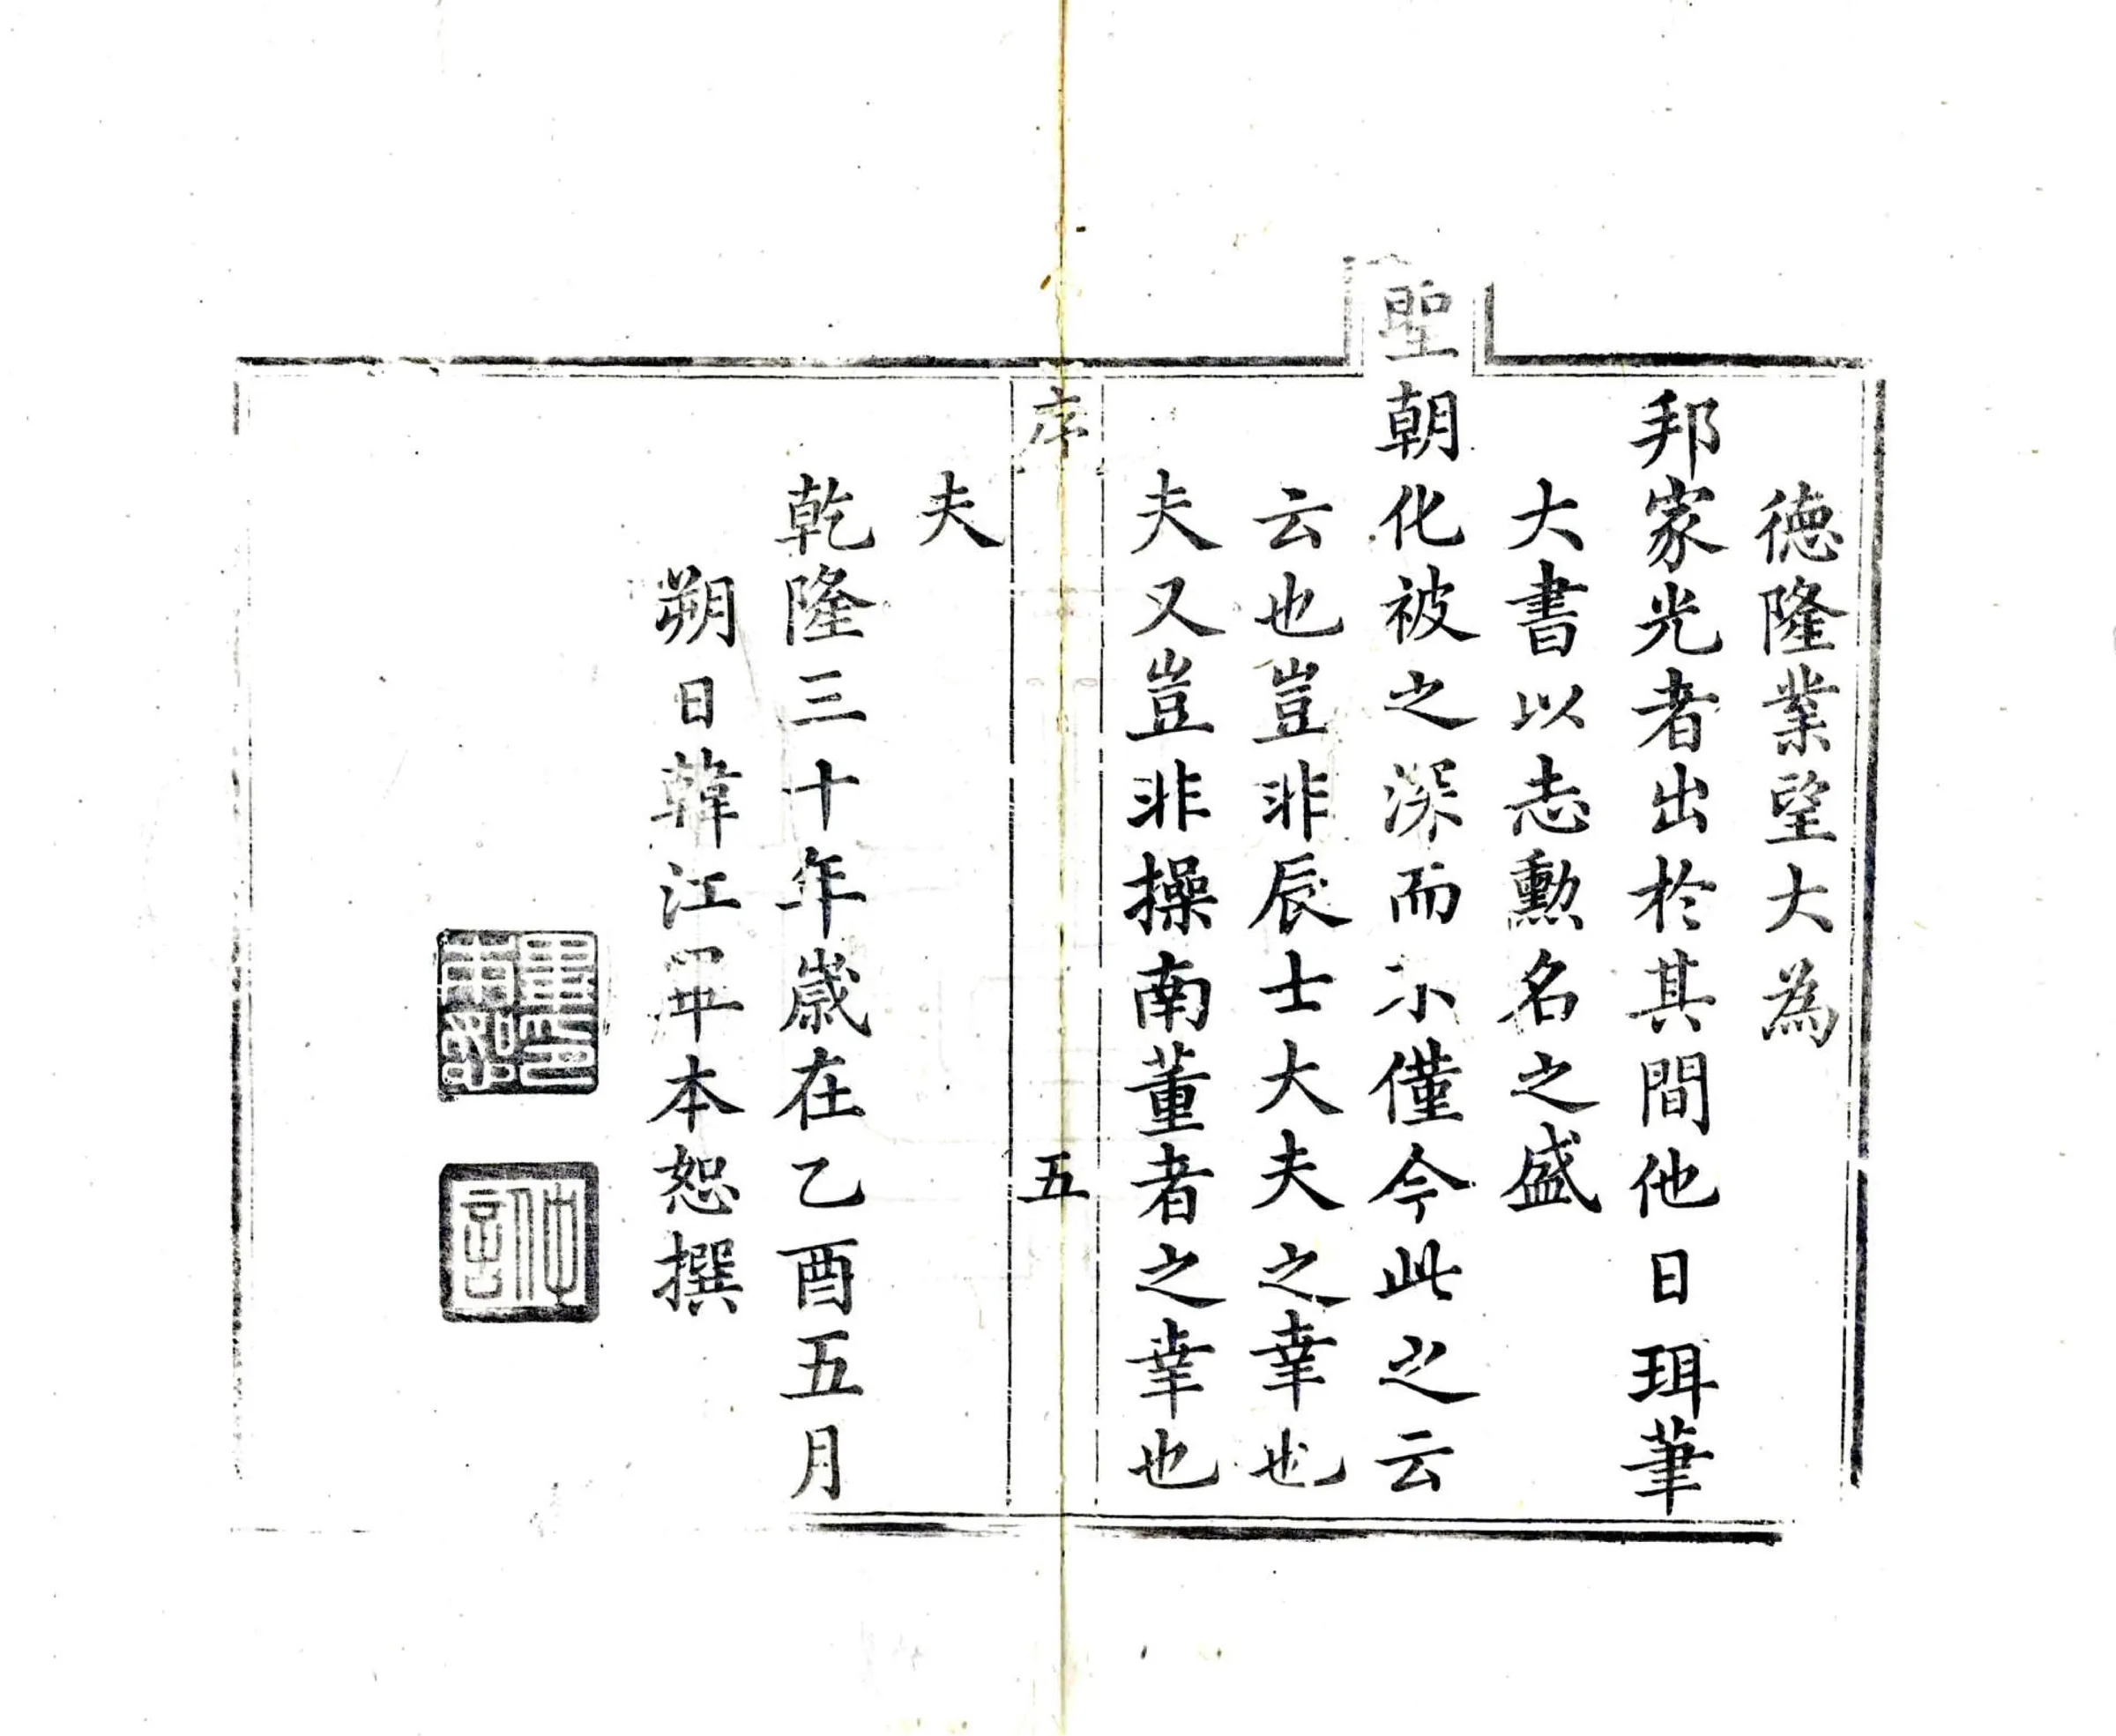 德隆業望大為
邦家光者出於其間他日珥筆
大書以志勲名之盛
聖朝化被之深而不僅今此之云
云也豈非辰士大夫之幸也
夫又豈非操南董者之幸也
序 五
夫
乾隆三十年歲在乙酉五月
朔日韓江單本恕撰